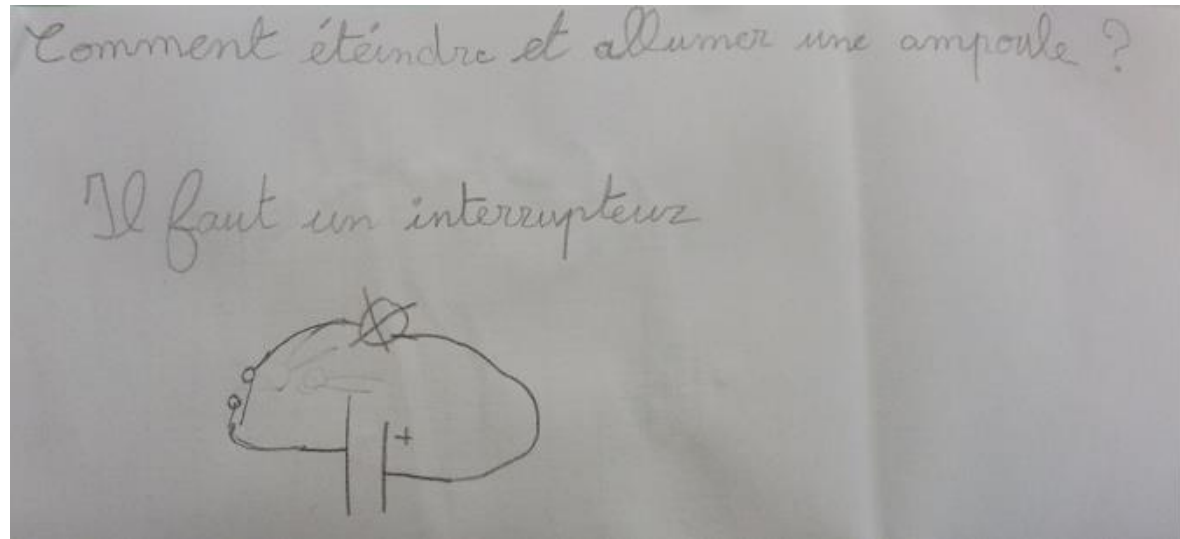 Comment éteindre et allumer une ampoule ?
Il faut un interrupteur
+